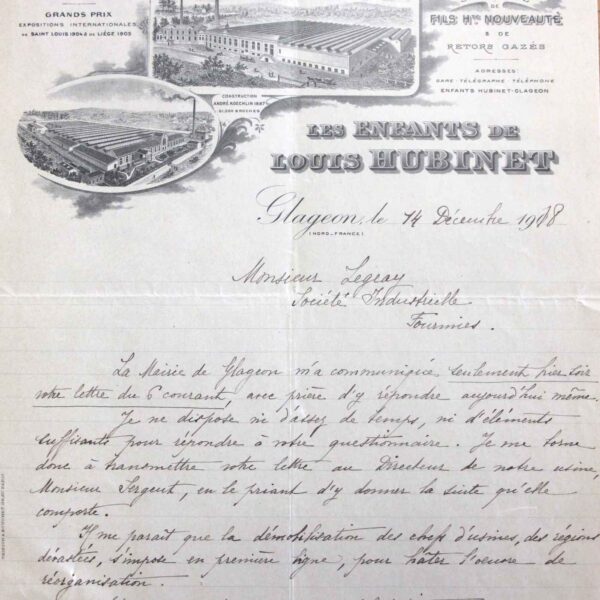 GRANDS PRIX
EXPOSITIONS INTERNATIONALES
DE SAINT LOUIS 1904 & DE LIÉGE 1905
DE
FILS Hte NOUVEAUTÉ
& DE
RETORS GAZÉS
ADRESSES
GARE-TÉLÉGRAPHE TÉLÉPHONE
ENFANTS HUBINET-GLAGEON
CONSTRUCTION
ANDRÉ KOECHLIN 1897
LES ENFANTS DE
LOUIS HUBINET
Glageon, le 14 Décembre 1918
(NORD-FRANCE)
Monsieur Legeay
Société Industrielle
Fourmies.
La Mairie de Glageon m'a communiqué seulement hier soir
votre lettre du 6 courant, avec prière d'y répondre aujourd'hui même.
Je ne dispose ni d'assez de temps, ni d'éléments
suffisants pour répondre à votre questionnaire. Je me borne
donc à transmettre votre lettre au Directeur de notre usine,
Monsieur Sergent, en le priant d'y donner la suite qu'elle
comporte.
Il me parait que la démobilisation des chefs d'usines, des régions
dévastées, s'impose en première ligne, pour hâter l'oeuvre de
réorganisation.